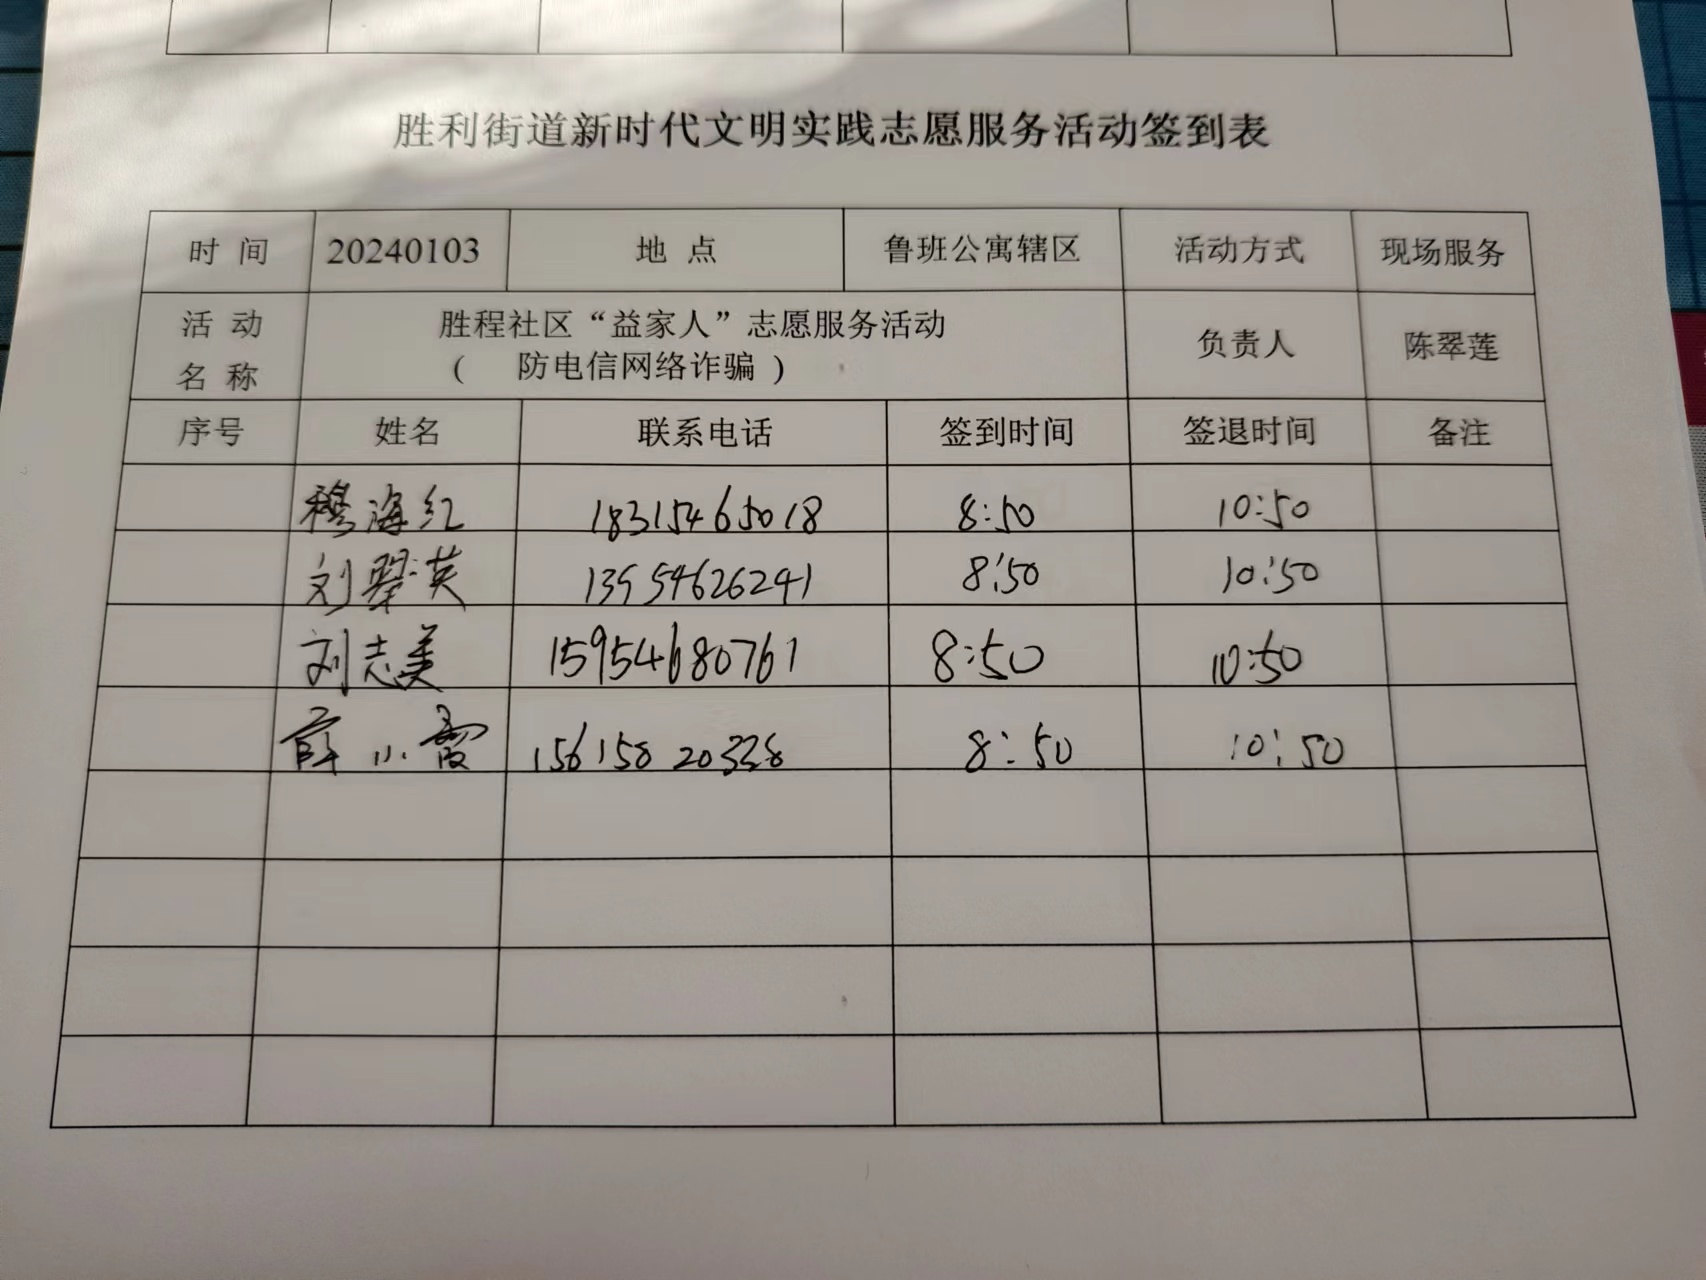 胜利街道新时代文明实践志愿服务活动签到表
时 间 20240103 地 点 鲁班公寓辖区 活动方式 现场服务
活 动 名 称 胜程社区“益家人”志愿服务活动 负责人 陈翠莲
( 防电信网络诈骗 )
序号 姓名 联系电话 签到时间 签退时间 备注
穆海红 18315465018 8:50 10:50
刘翠英 13954626241 8:50 10:50
刘志美 15954680761 8:50 10:50
薛小霞 15615820328 8:50 10:50